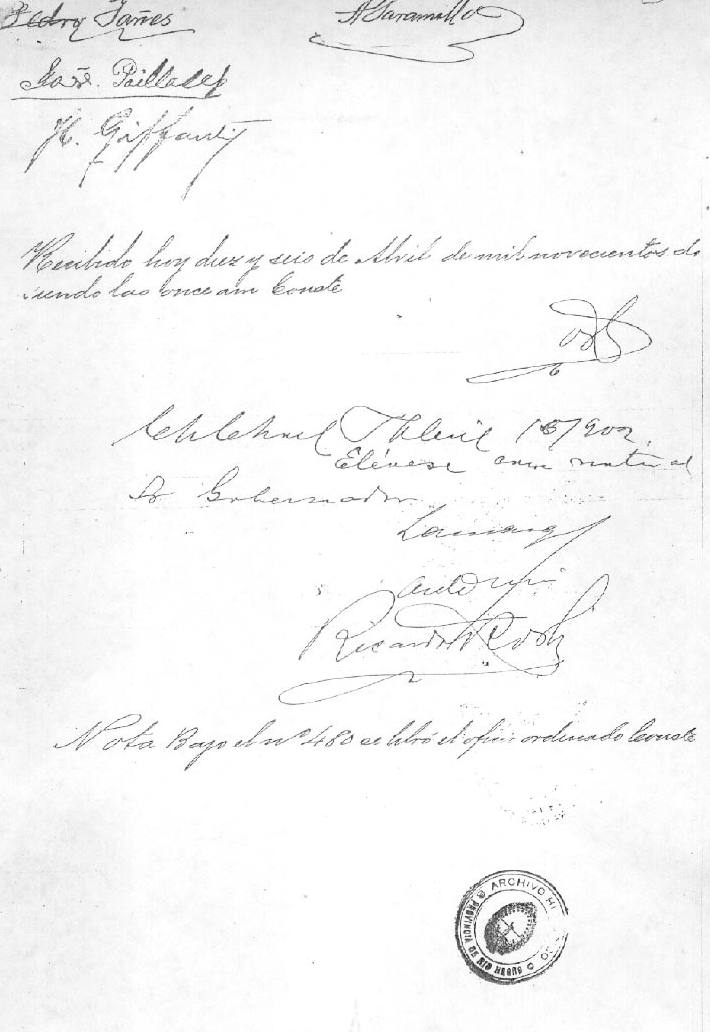 Pedro Yañes
A Jaramillo
José
Recibido hoy diez y seis de Abril de mil novecientos do
siendo las once am Conste
Abril 16/902.
Elévese con nota al
Sr Gobernador
Ante mi
Ricardo
Nota Bajo el nº 480 se libró el oficio ordenado Conste
ARCHIVO HI
PROVINCIA DEL NEUQUEN